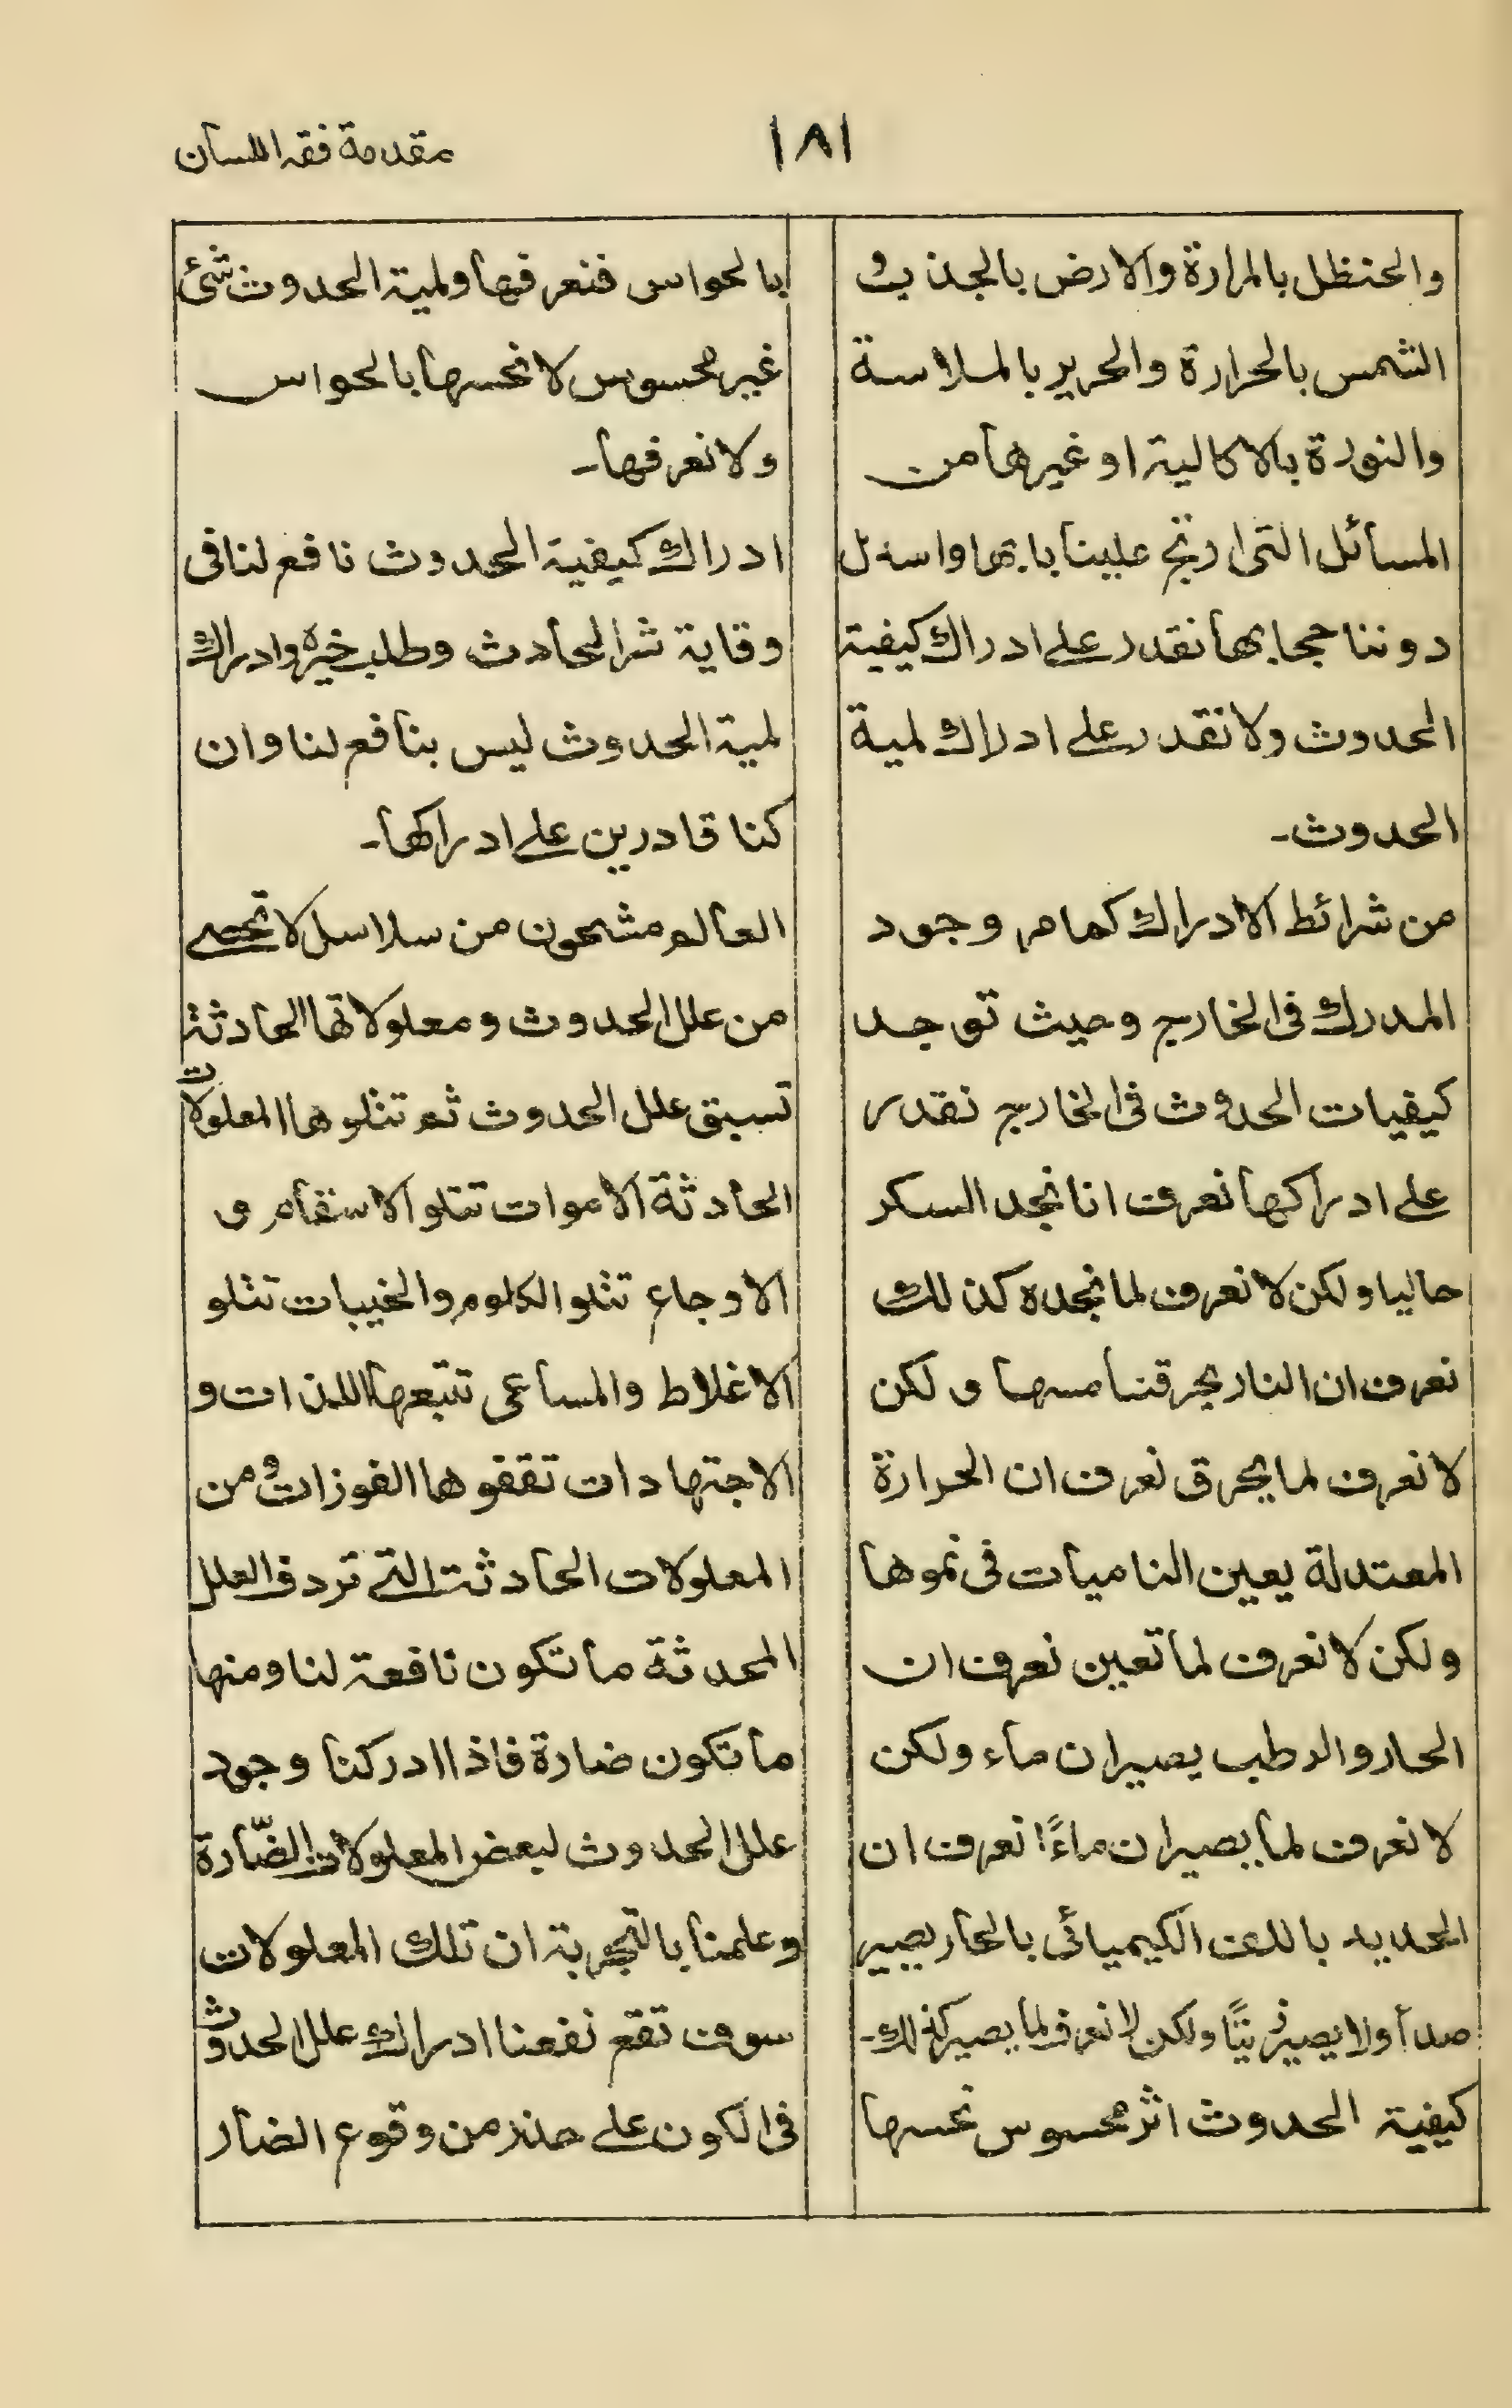 مقدمة فقه اللسان
١٨١
والحنظل بالمرارة والارض بالجذب و
الشمس بالحرارة والحرير بالملاسة
والنورة بالاكالية او غيرها من
المسائل التى ارتج علينا بابها واسدل
دوننا حجابها نقدر على ادراك كيفية
الحدوث ولا نقدر على ادراك لمية
الحدوث۔
من شرائط الادراك كمامر وجود
المدرك فى الخارج وحيث توجد
كيفيات الحدوث فى الخارج نقدر
على ادراكها نعرف انا نجد السكر
حاليا ولكن لا نعرف لما نجده كذلك
نعرف ان النار يحرقنا مسها و لكن
لا نعرف لما يحرق نعرف ان الحرارة
المعتدلة يعين الناميات فى نموها
ولكن لا نعرف لما تعين نعرف ان
الحار والرطب يصيران ماء ولكن
لا نعرف لما يصيران ماءً نعرف ان
الحديد بالدعت الكيميائى بالحار يصير
صدأ ولا يصير زيتًا ولكن لا نعرف لما يصير كذلك۔
كيفية الحدوث اثر محسوس نحسها
بالحواس فنعرفها ولمية الحدوث شئ
غير محسوس لا نحسها بالحواس
ولا نعرفها۔
ادراك كيفية الحدوث نافع لنا فى
وقاية شر الحادث وطلب خيره وادراك
لمية الحدوث ليس بنافع لنا وان
كنا قادرين على ادراكها۔
العالم مشحون من سلاسل لا تحصى
من علل الحدوث و معلولاتها الحادثة
تسبق علل الحدوث ثم تتلوها المعلولات
الحادثة الاموات تتلو الاسقام و
الاوجاع تتلو الكلوم والخيبات تتلو
الاغلاط والمساعى تتبعها اللذات و
الاجتهادات تقفوها الفوزات و من
المعلولات الحادثة التى تردف العلل
المحدثة ما تكون نافعة لنا ومنها
ما تكون ضارة فاذا ادركنا وجود
علل الحدوث لبعض المعلولات الضّارة
وعلمنا بالتجربة ان تلك المعلولات
سوف تقع نفعنا ادراك علل الحدوث
فى الكون على حذر من وقوع الضار